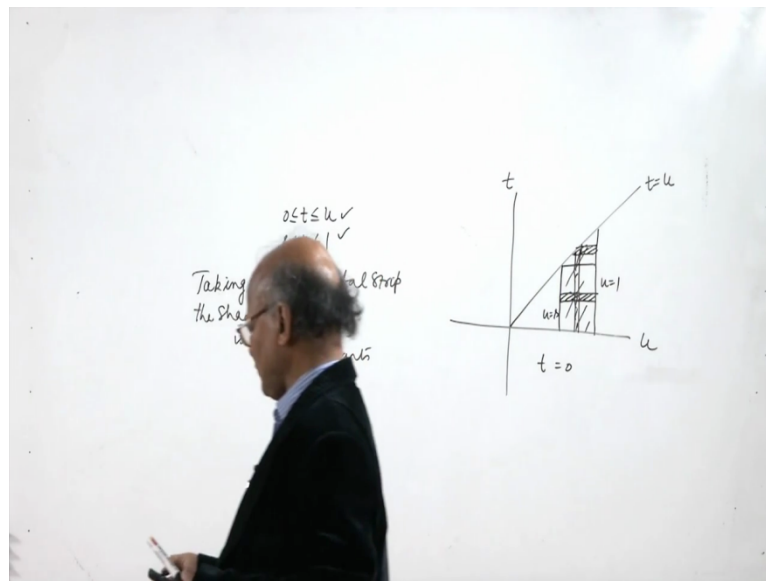 0≤t≤u ✓
1 ✓
Taking tal strip
the sha
t
t=u
u=1
u
t=0